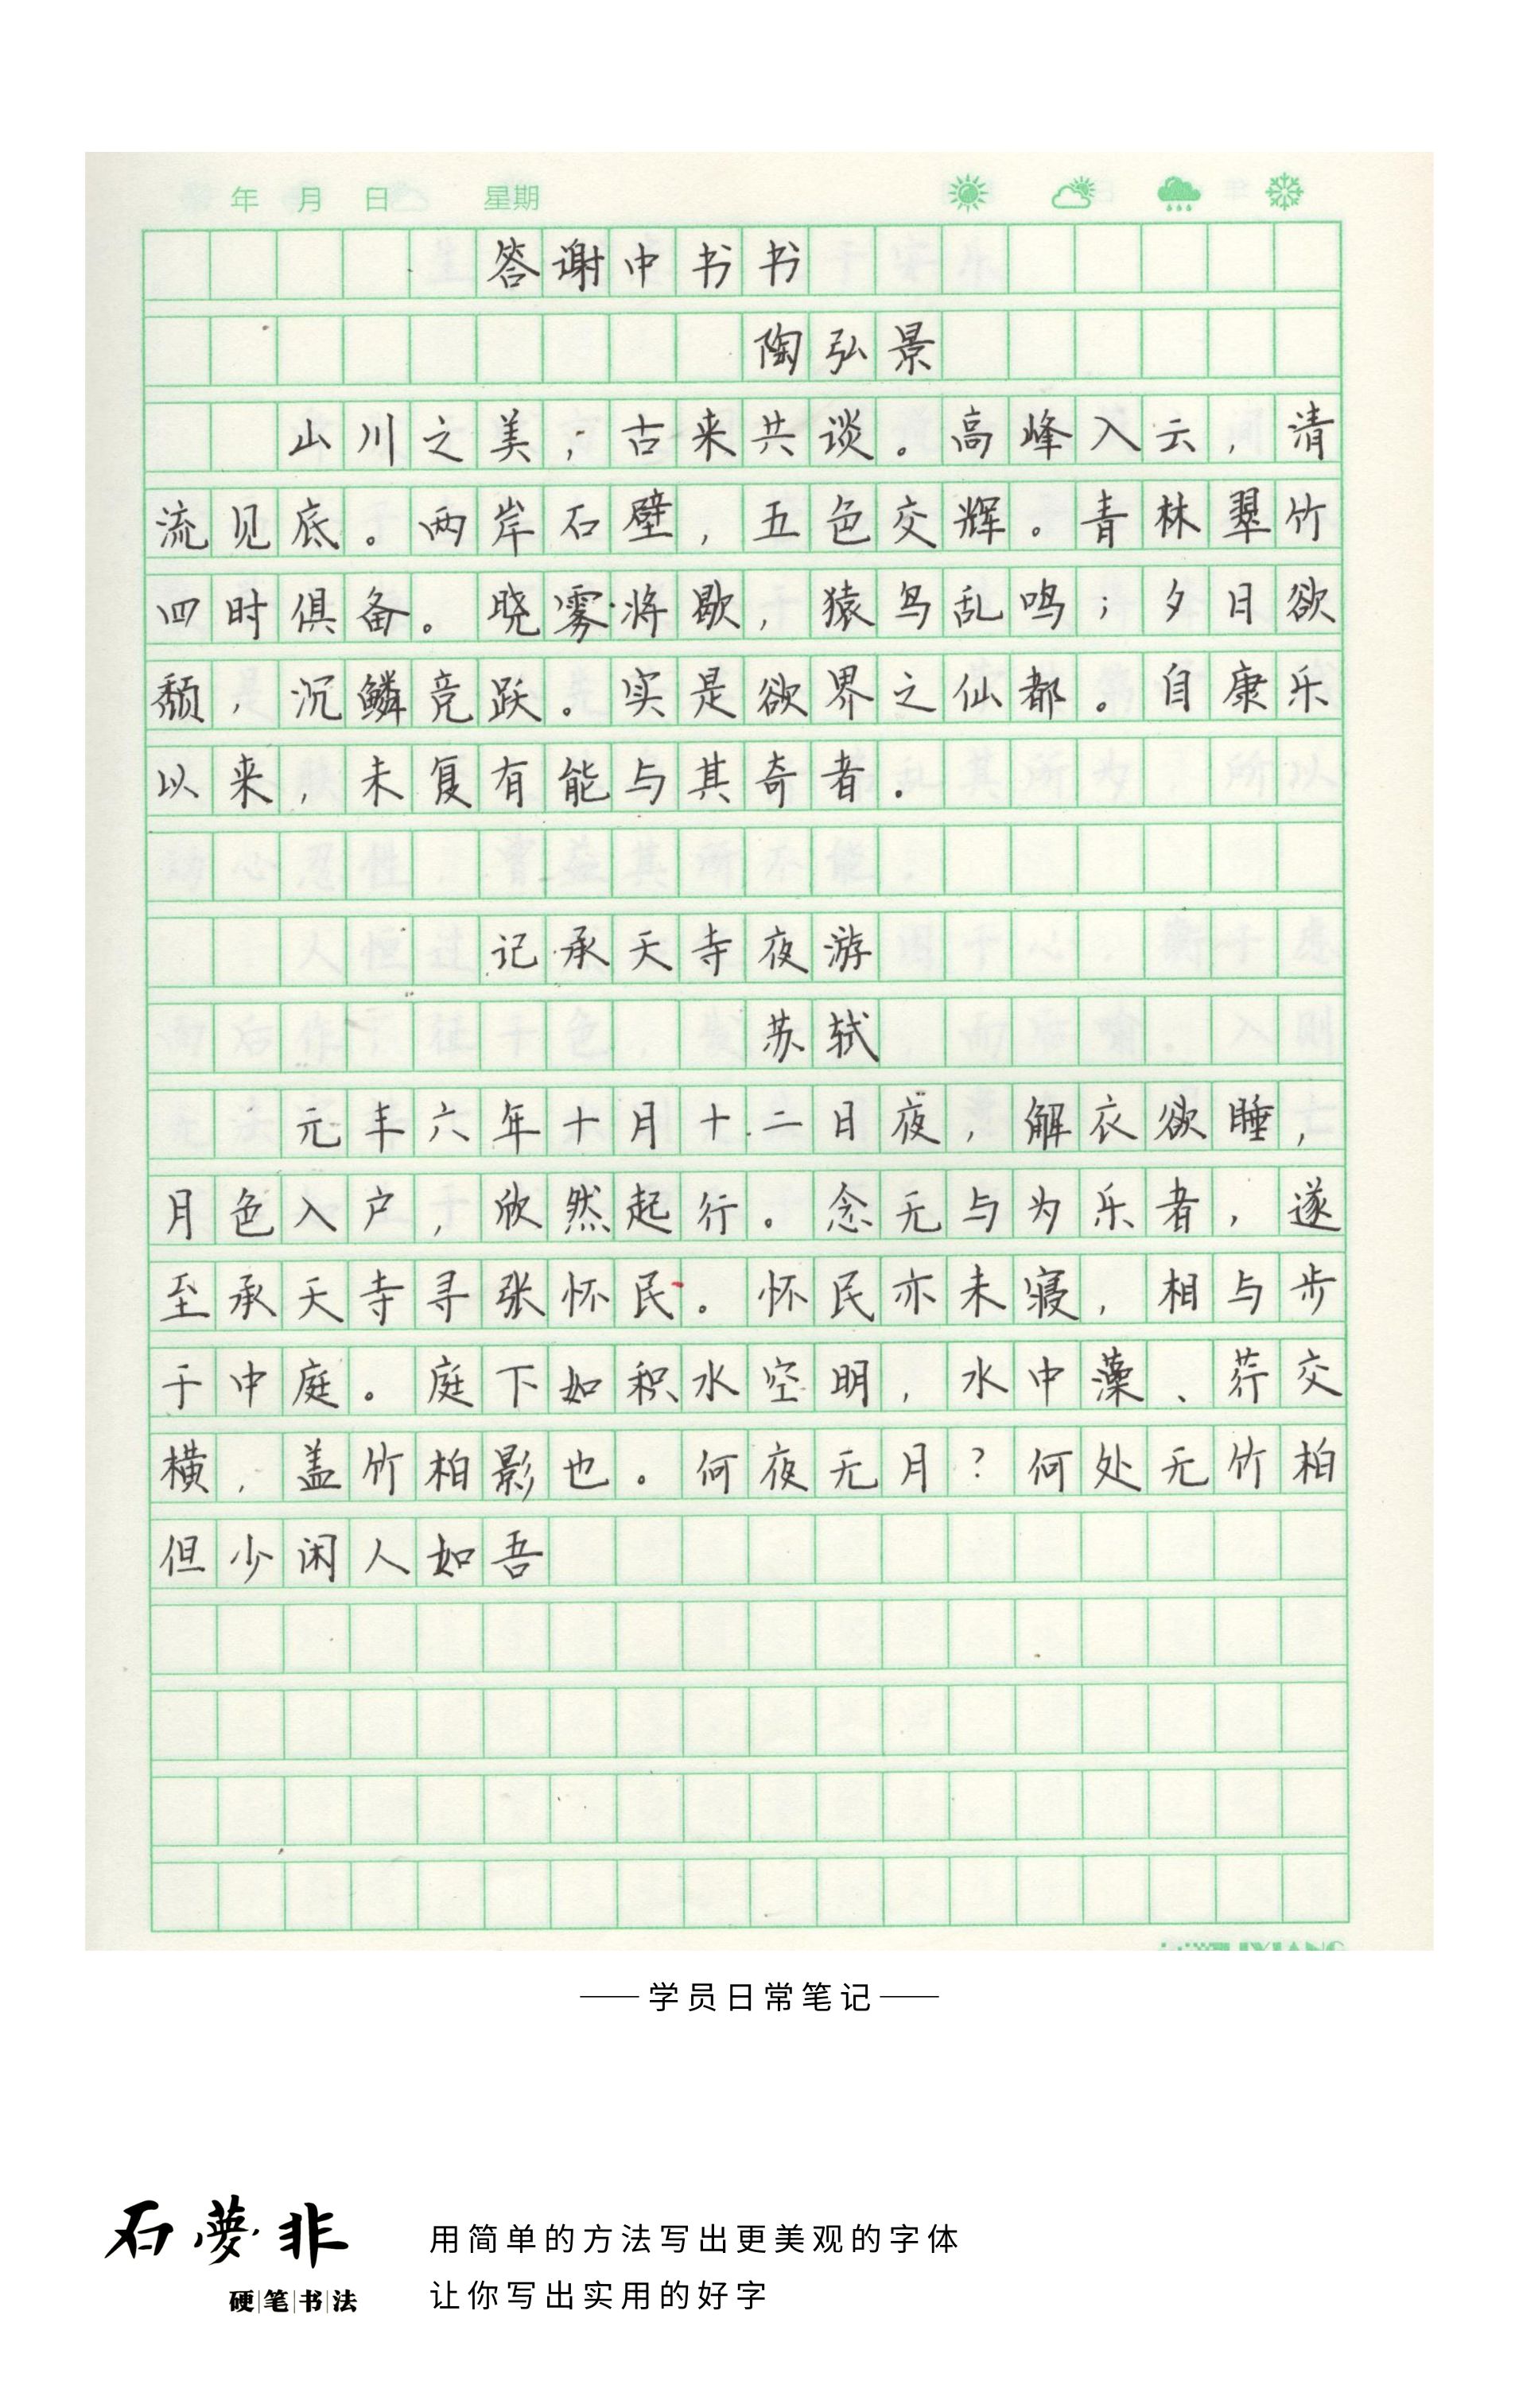 年 月 日 星期
答谢中书书
陶弘景
山川之美，古来共谈。高峰入云，清
流见底。两岸石壁，五色交辉。青林翠竹
四时俱备。晓雾将歇，猿鸟乱鸣；夕日欲
颓，沉鳞竞跃。实是欲界之仙都。自康乐
以来，未复有能与其奇者。
记承天寺夜游
苏轼
元丰六年十月十二日夜，解衣欲睡，
月色入户，欣然起行。念无与为乐者，遂
至承天寺寻张怀民。怀民亦未寝，相与步
于中庭。庭下如积水空明，水中藻、荇交
横，盖竹柏影也。何夜无月？何处无竹柏
但少闲人如吾
学员日常笔记
石夢非
硬笔书法
用简单的方法写出更美观的字体
让你写出实用的好字